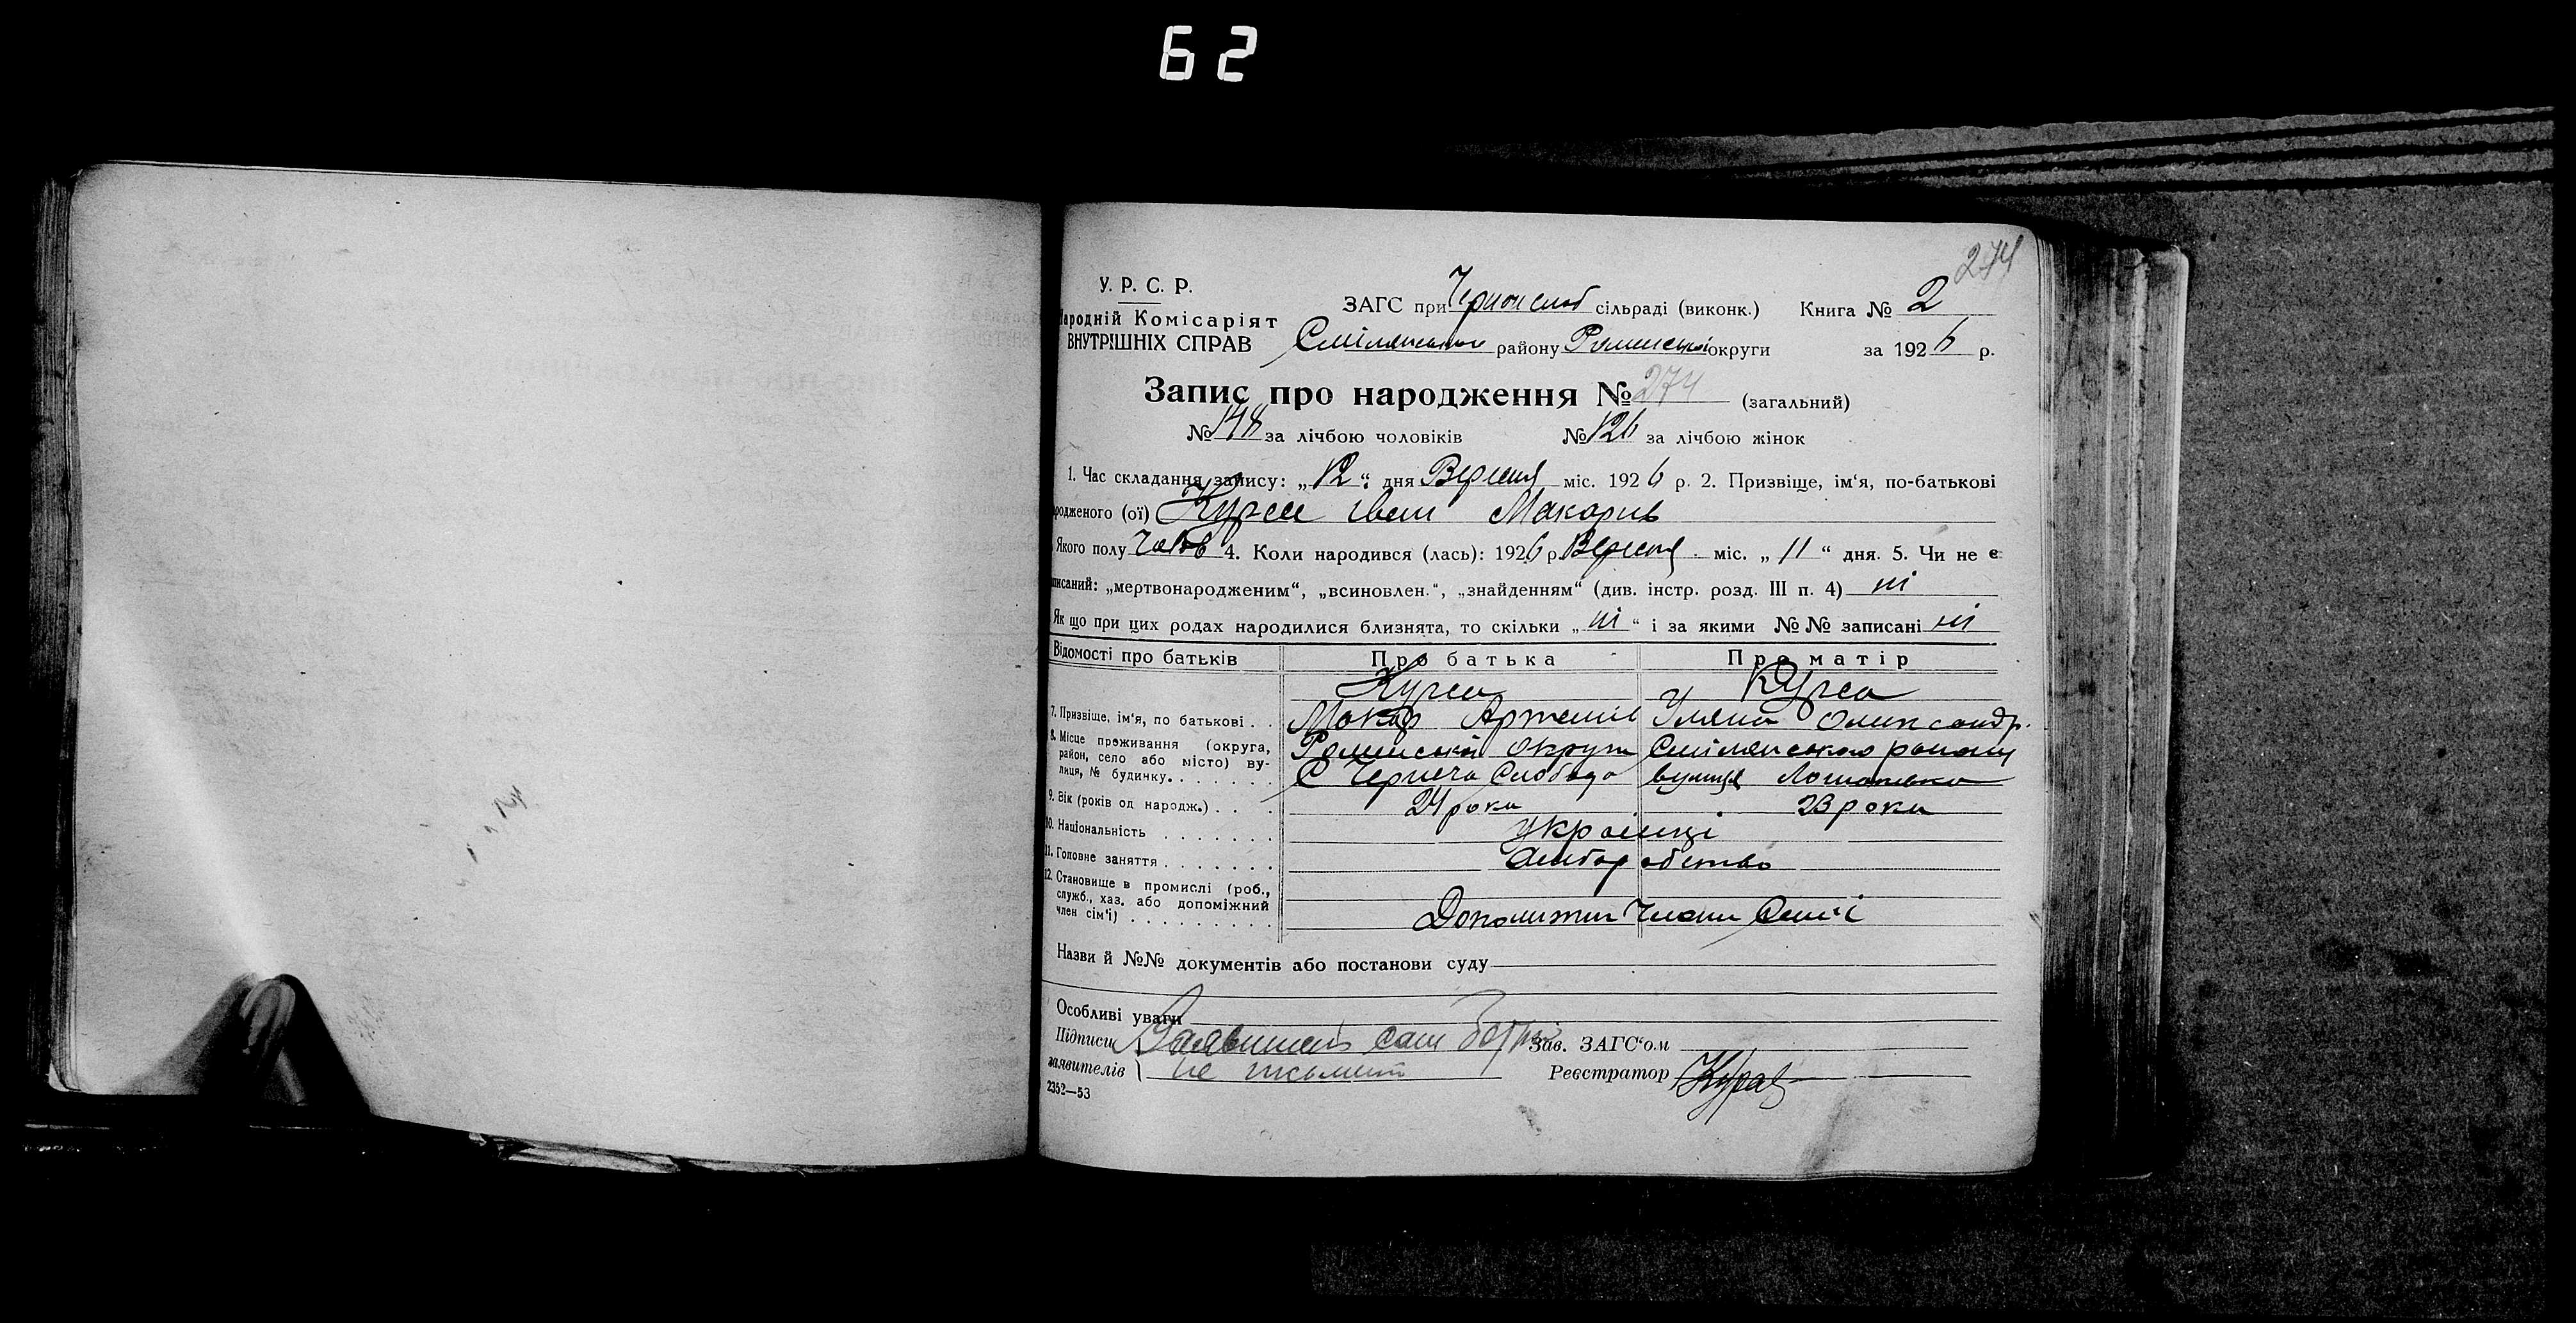 62
274
У. Р. С. Р.
Народній Комісаріят
ВНУТРІШНІХ СПРАВ
ЗАГС при Черн слоб сільраді (виконк.) Книга № 2
Смілянського району Роменської округи за 1926 р.
Запис про народження № 274 (загальний)
№ 148 за лічбою чоловіків № 126 за лічбою жінок
1. Час складання запису: „ 12 “ дня Вересня міс. 1926 р. 2. Призвіще, ім‘я, по-батькові
родженого (ої) Іван Макарів
Якого полу чолов 4. Коли народився (лась): 1926 р Вересня міс. „ 11 “ дня. 5. Чи не є
писаний: „мертвонародженим“, „всиновлен.“, „знайденням“ (див. інстр. розд. III п. 4) ні
Як що при цих родах народилися близнята, то скільки „ ні “ і за якими №№ записані ні
Відомості про батьків Про батька Про матір
7. Призвіще, ім‘я, по батькові . . Макар Артемів Уляна Олександр.
8. Місце проживання (округа, район, село або місто) вулиця, № будинку. Роменської округи Смілянського району
С Чернеча Слобода вулиця
9. Вік (років од народж.) . . . 24 роки 23 роки
10. Національність . . . . . . . Українці
11. Головне заняття . . . . . . . хліборобство
12. Становище в промислі (роб.,
служб., хаз. або допоміжний
член сім‘ї) . . . . . . . . . Допоміжни Члени Сімї
Назви й №№ документів або постанови суду
Особливі уваги
Підписи Заявитель сам батько Зав. ЗАГС‘ом
заявителів не письмений Реєстратор
2352—53